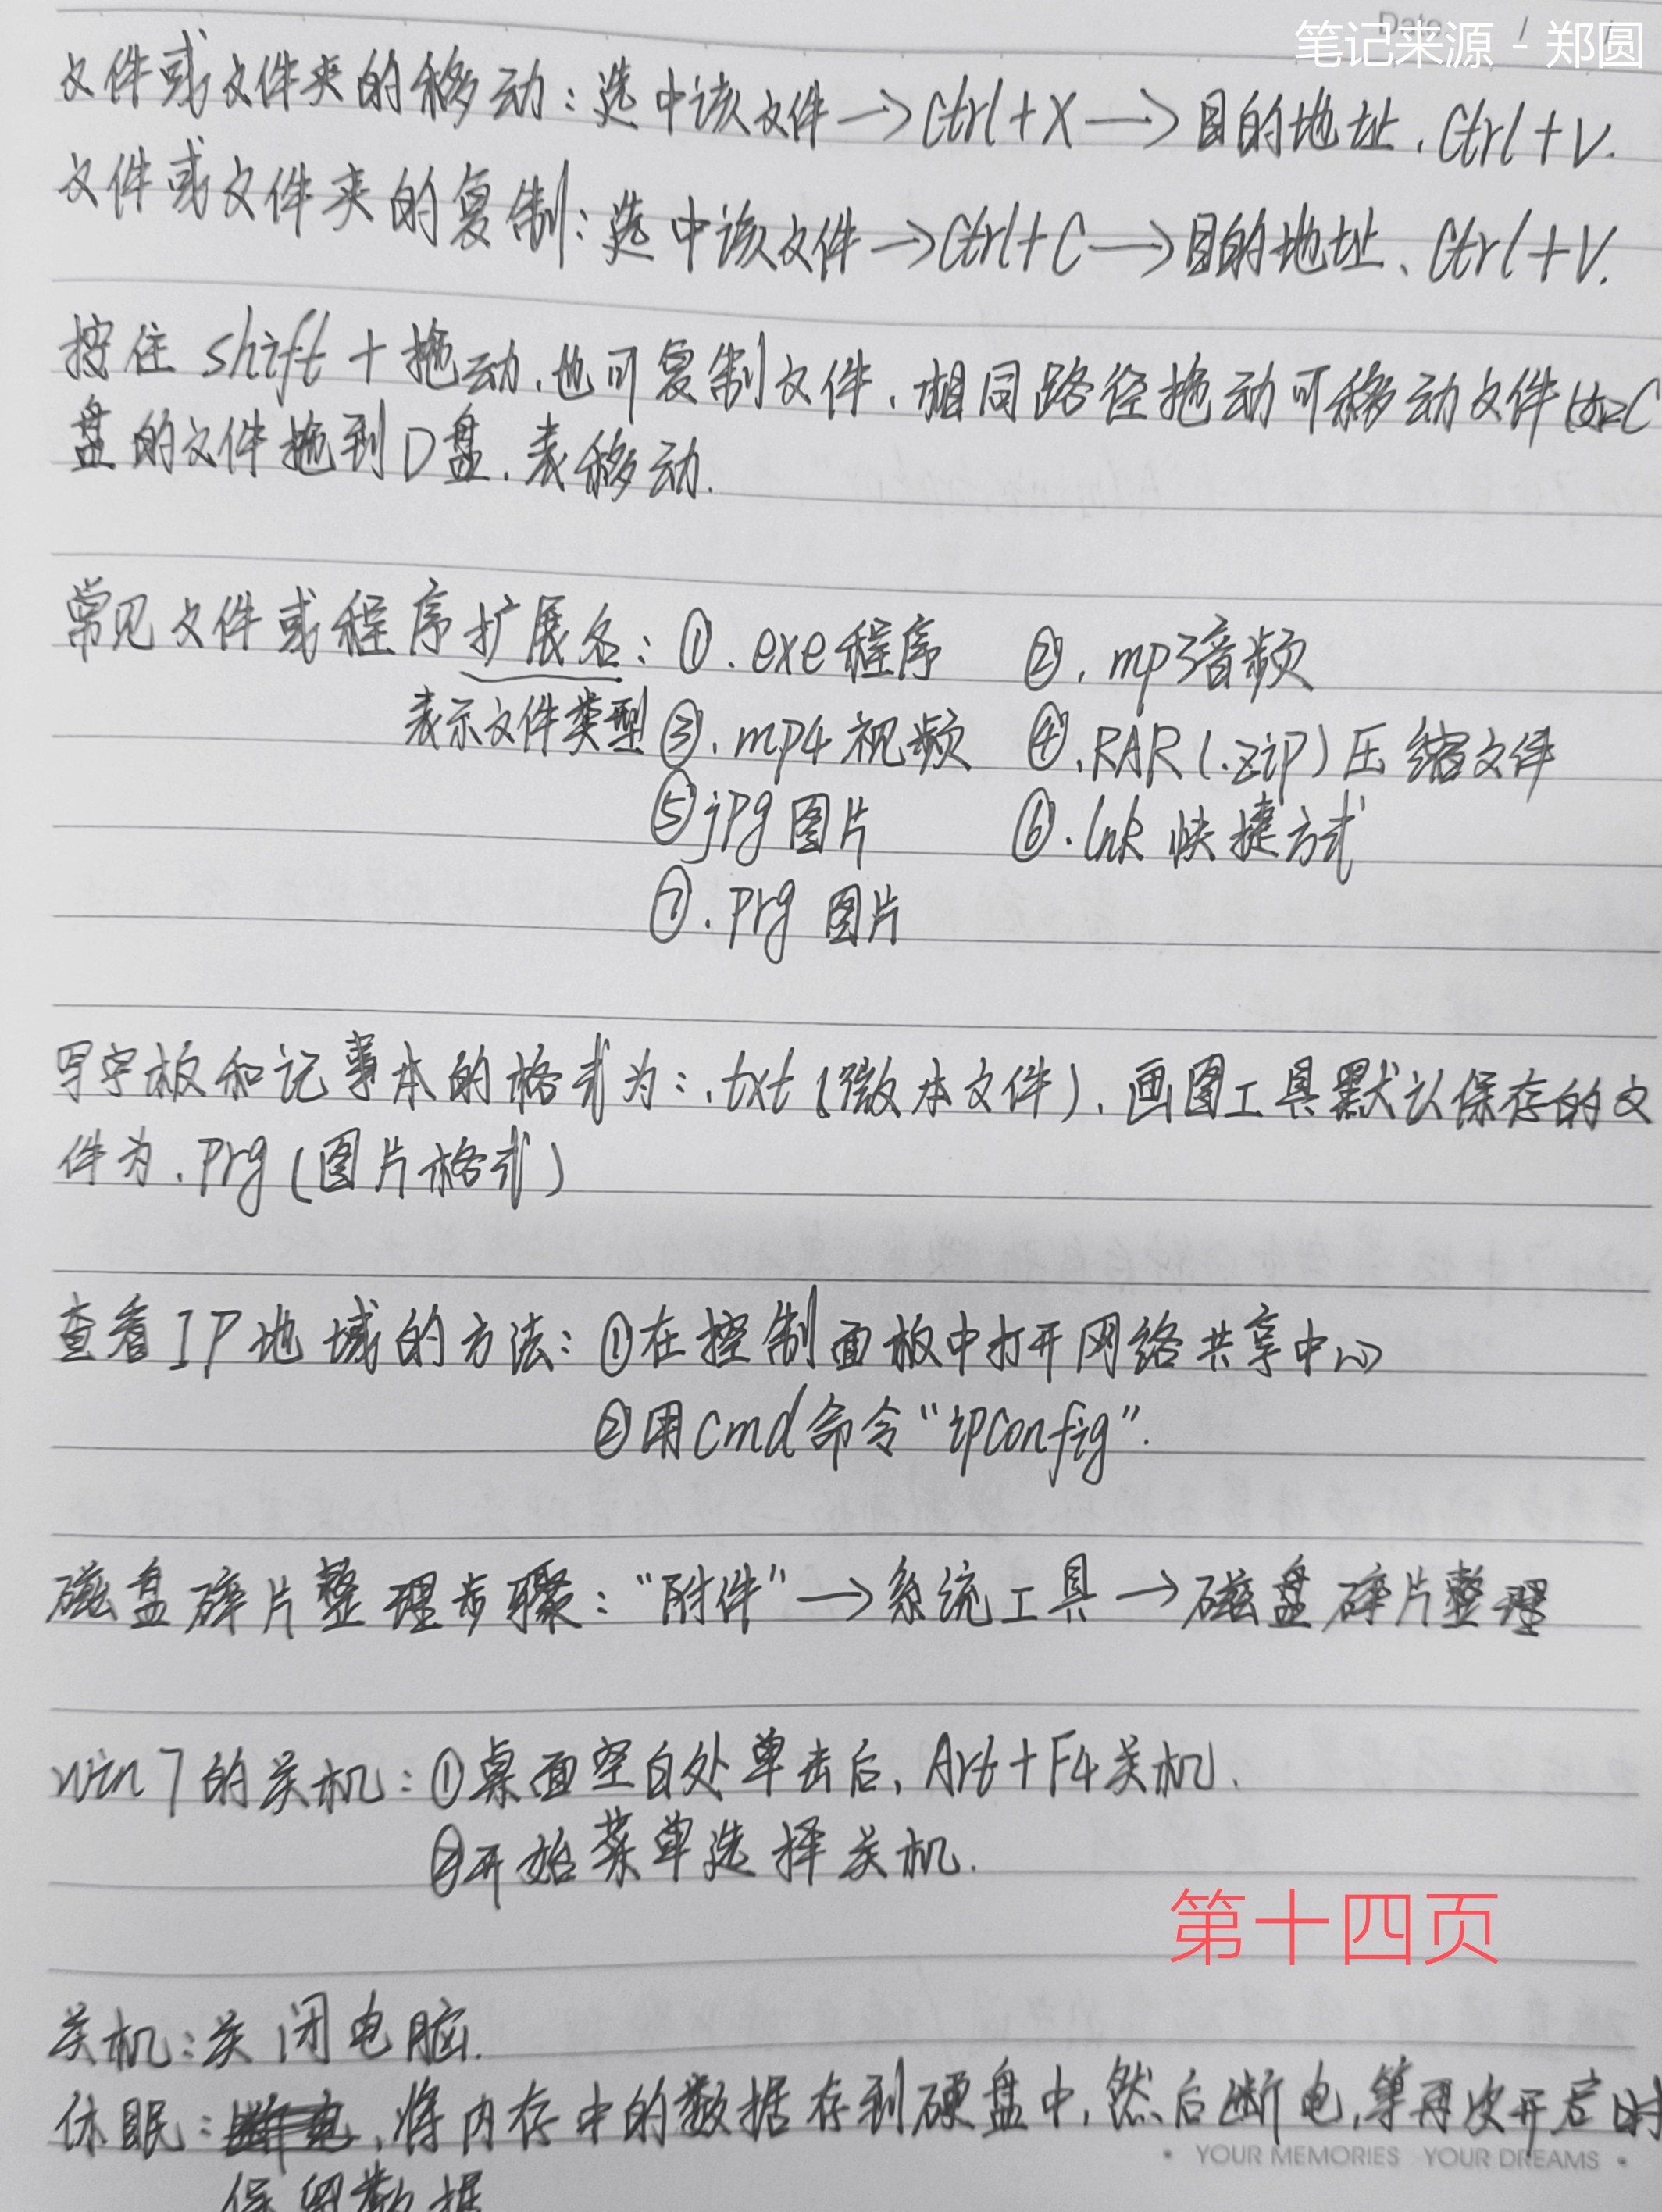 Date / /
笔记来源 - 郑圆
文件或文件夹的移动：选中该文件→Ctrl+X→目的地址、Ctrl+V.
文件或文件夹的复制：选中该文件→Ctrl+C→目的地址、Ctrl+V.
按住 shift + 拖动、也可复制文件、相同路径拖动可移动文件 C
盘的文件拖到D盘、表移动.
常见文件或程序扩展名：①.exe程序 ②.mp3音频
表示文件类型 ③.mp4 视频 ④.RAR(.zip)压缩文件
⑤jpg 图片 ⑥.lnk 快捷方式
⑦.prg 图片
写字板和记事本的格式为：.txt (微本文件)、画图工具默认保存的文
件为.prg (图片格式)
查看IP地域的方法：①在控制面板中打开网络共享中心
②用cmd命令“ipconfig”.
磁盘碎片整理步骤：“附件”→系统工具→磁盘碎片整理
win7的关机：①桌面空白处单击后、Art+F4关机.
②开始菜单选择关机.
第十四页
关机：关闭电脑.
休眠：、将内存中的数据存到硬盘中，然后断电，等再次开启时
保留数据
• YOUR MEMORIES YOUR DREAMS •